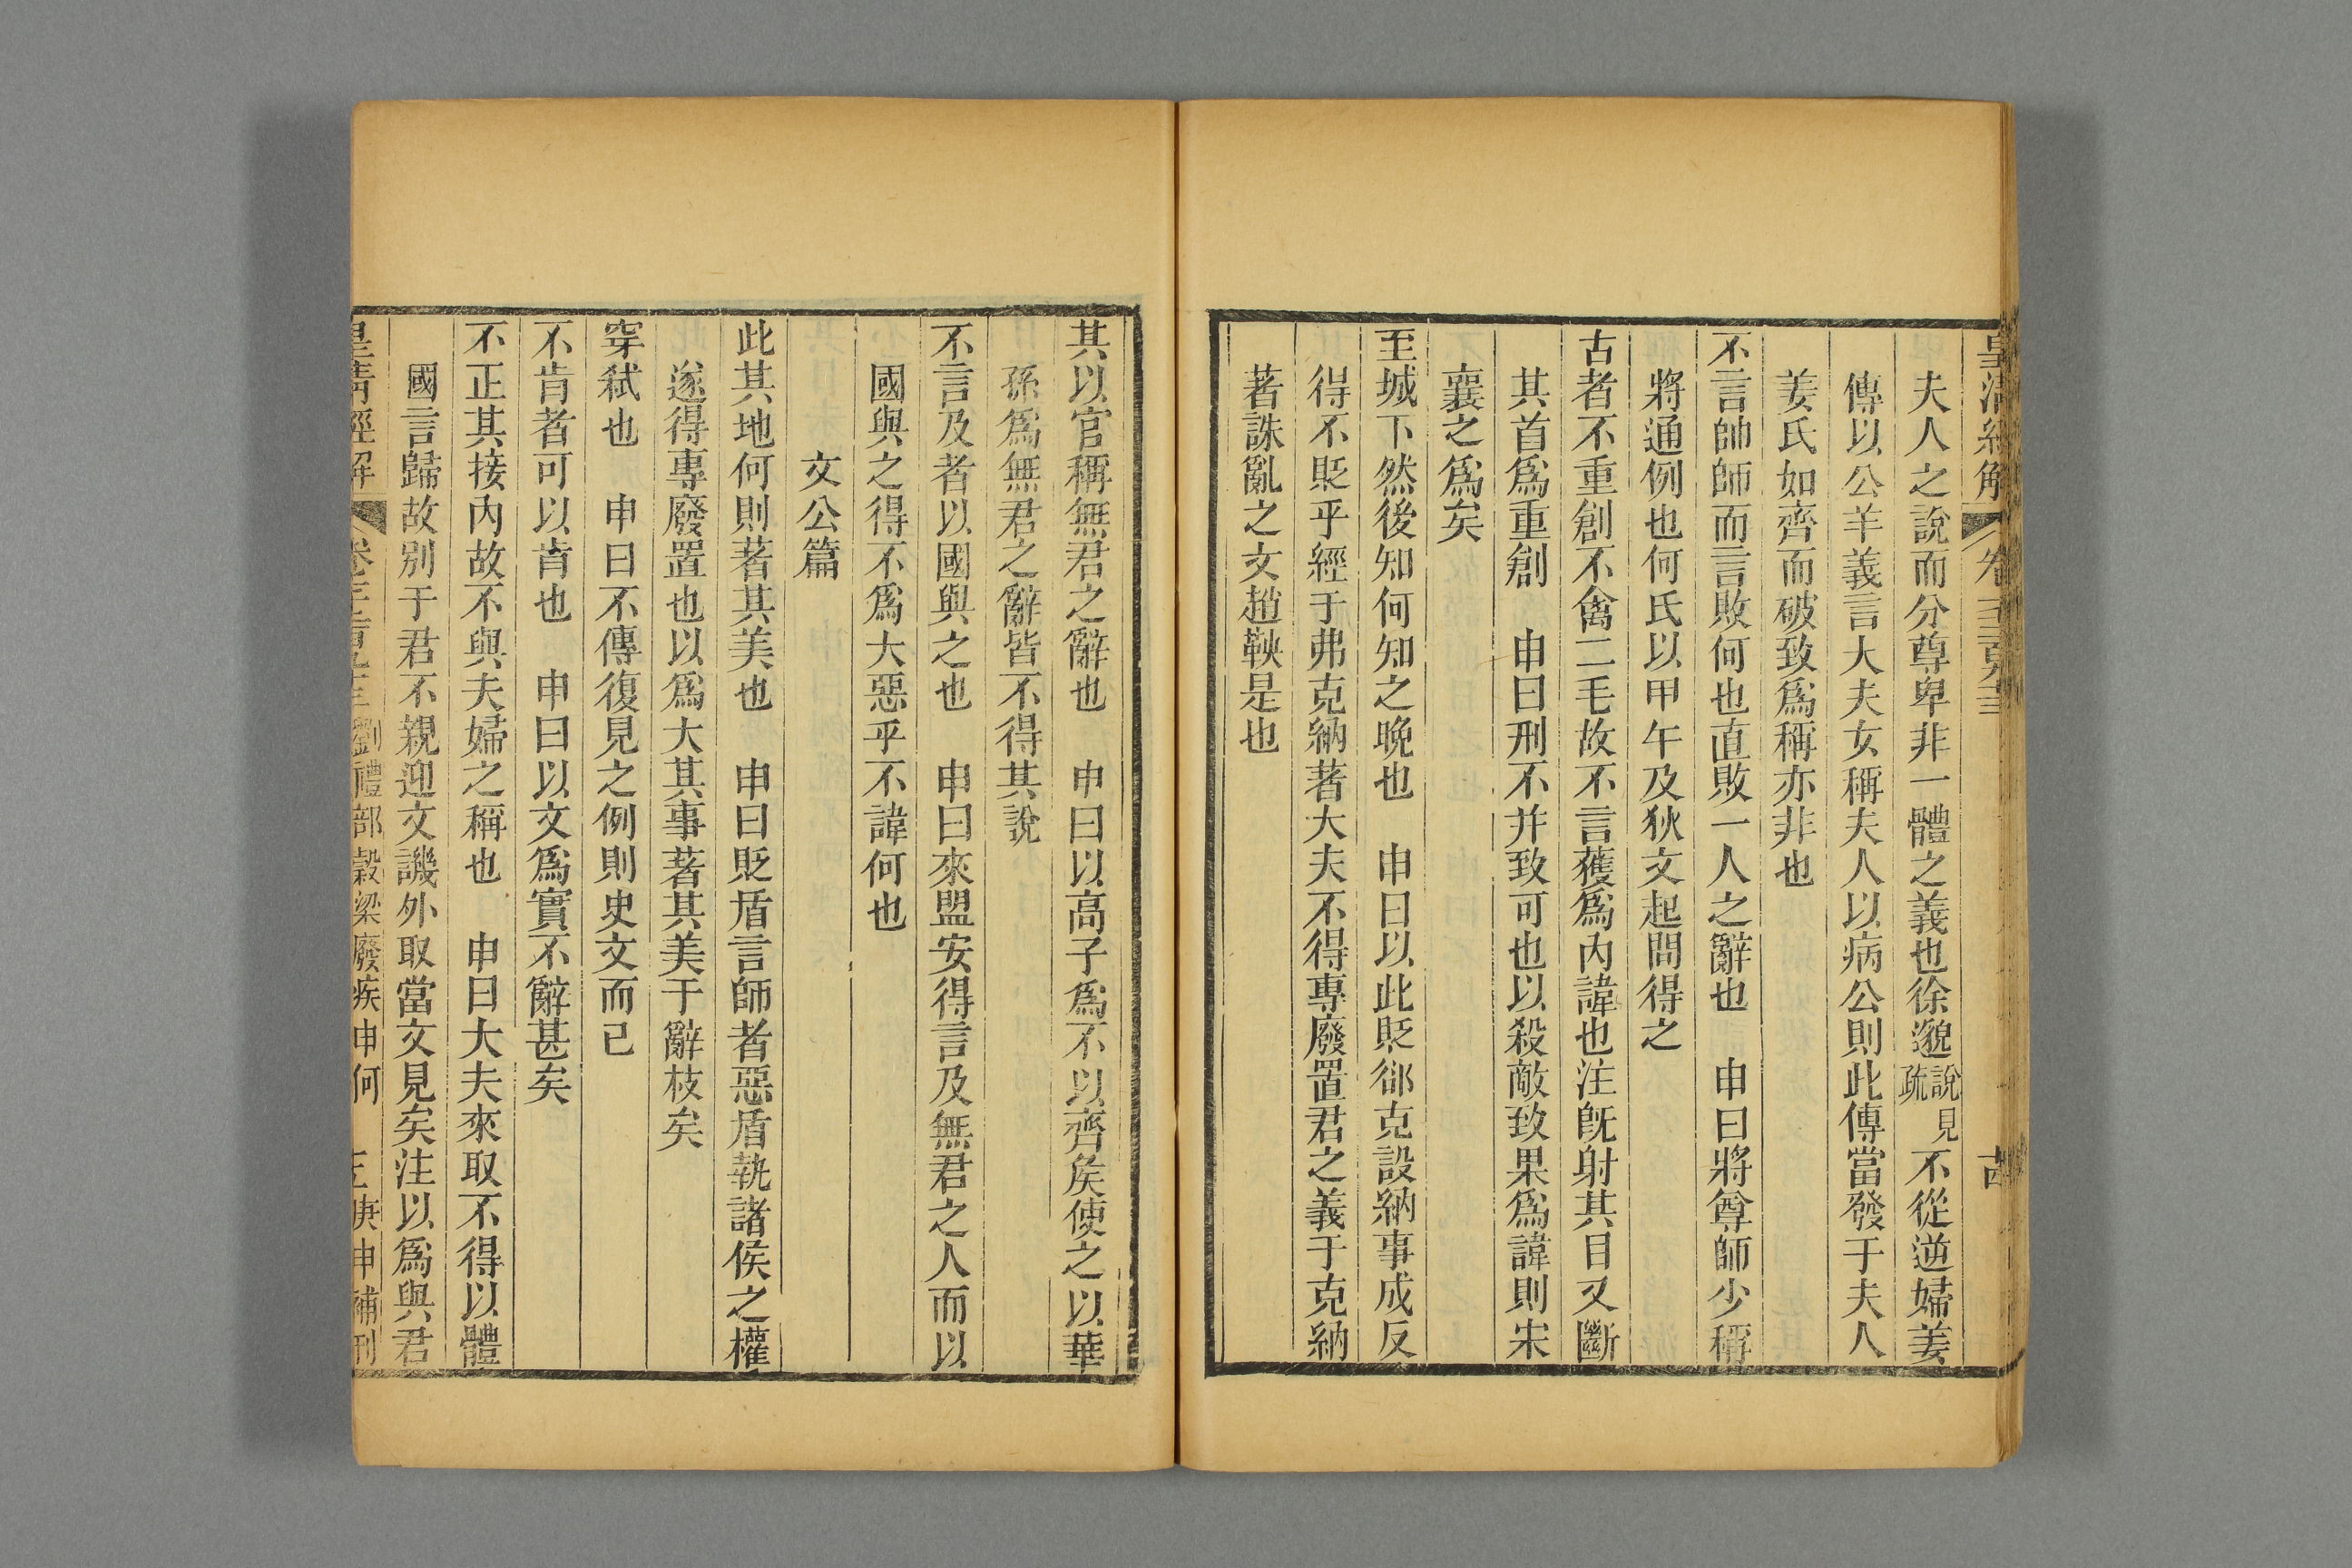 皇清經解
夫人之說而分尊卑非一體之義也徐邈說見疏不從逆婦姜
傳以公羊義言大夫女稱夫人以病公則此傳當發于夫人
姜氏如齊而破致爲稱亦非也
不言帥師而言敗何也直敗一人之辭也　申曰將尊師少稱
將通例也何氏以甲午及狄文起間得之
古者不重創不禽二毛故不言獲爲內諱也注旣射其目又斷
其首爲重創　申曰刑不幷致可也以殺敵致果爲諱則宋
襄之爲矣
至城下然後知何知之晚也　申曰以此貶郤克設納事成反
得不貶乎經于弗克納著大夫不得專廢置君之義于克納
著誅亂之文趙鞅是也
其以官稱無君之辭也　申曰以高子爲不以齊矦使之以華
孫爲無君之辭皆不得其說
不言及者以國與之也　申曰來盟安得言及無君之人而以
國與之得不爲大惡乎不諱何也
文公篇
此其地何則著其美也　申曰貶盾言師者惡盾執諸侯之權
遂得專廢置也以爲大其事著其美于辭枝矣
穿弒也　申曰不傳復見之例則史文而已
不肯者可以肯也　申曰以文爲實不辭甚矣
不正其接內故不與夫婦之稱也　申曰大夫來取不得以體
國言歸故別于君不親迎文譏外取當文見矣注以爲與君
皇清經解　劉禮部穀梁廢疾申何　庚申補刊